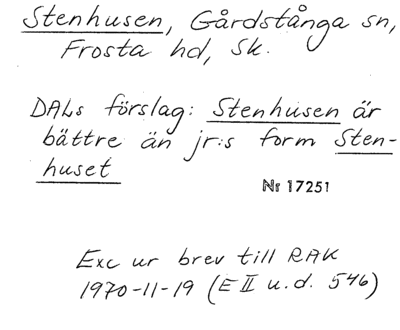 Stenhusen, Gårdstånga sn,
Frosta hd, Sk.
DALs förslag: Stenhusen är
bättre än jr:s form Sten-
huset
Nr 17251
Exc ur brev till RAK
1970-11-19 (E II u.d. 546)